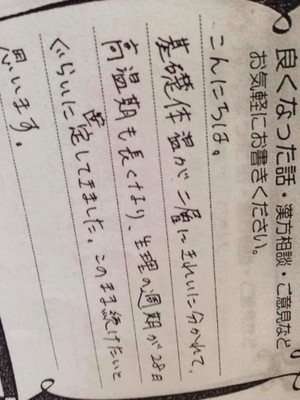 良くなった話・漢方相談・ご意見など
お気軽にお書きください。
こんにちは。
基礎体温が二層にきれいに分かれて、
高温期も長くなり、生理の週期が28日
ぐらいに安定してきました。このまま続けたいと
思います。